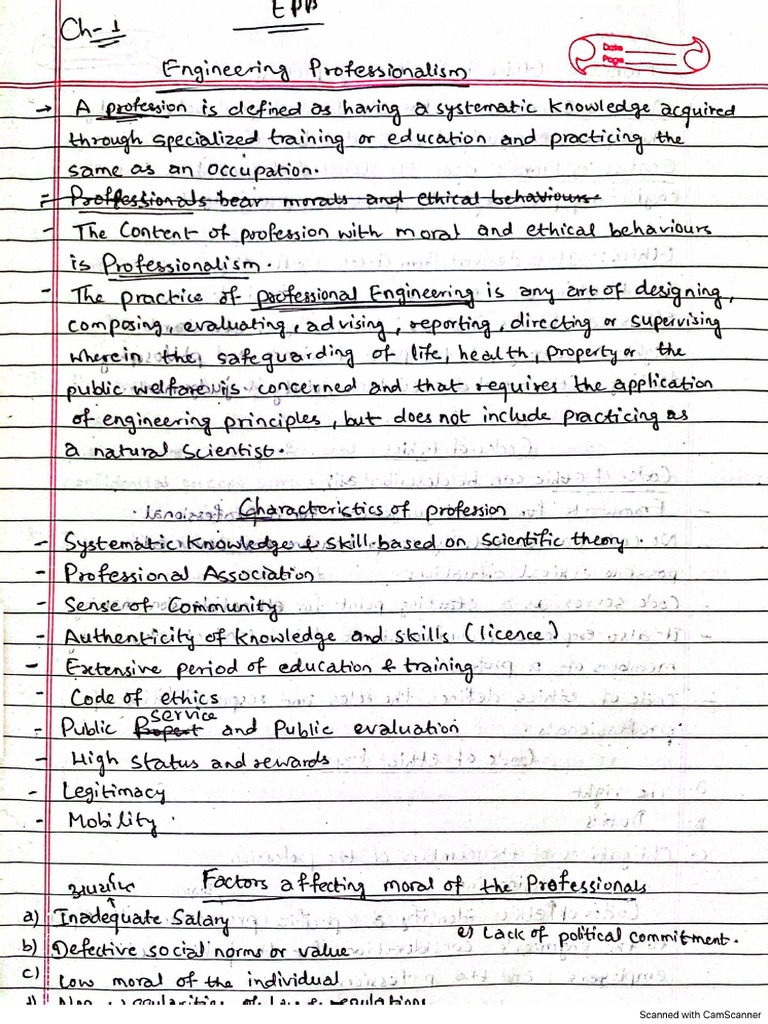 EPP
Ch-1
Date
Page
Engineering Professionalism
→ A profession is defined as having a systematic knowledge acquired
through specialized training or education and practicing the
same as an occupation.
- Proffessionals bear morals and ethical behaviours
- The Content of profession with moral and ethical behaviours
is Professionalism.
- The practice of professional Engineering is any art of designing,
composing, evaluating, advising, reporting, directing or supervising
wherein the safeguarding of life, health, property or the
public welfare is concerned and that requires the application
of engineering principles, but does not include practicing as
a natural scientist.
Characteristics of profession
- Systematic Knowledge & skill based on scientific theory.
- Professional Association
- Sense of Community
- Authenticity of knowledge and skills (licence)
- Extensive period of education & training
- Code of ethics
- Public service and Public evaluation
- High status and rewards
- Legitimacy
- Mobility.
Factors affecting moral of the Professionals
a) Inadequate Salary
e) Lack of political commitment.
b) Defective social norms or value
c) Low moral of the individual
Scanned with CamScanner